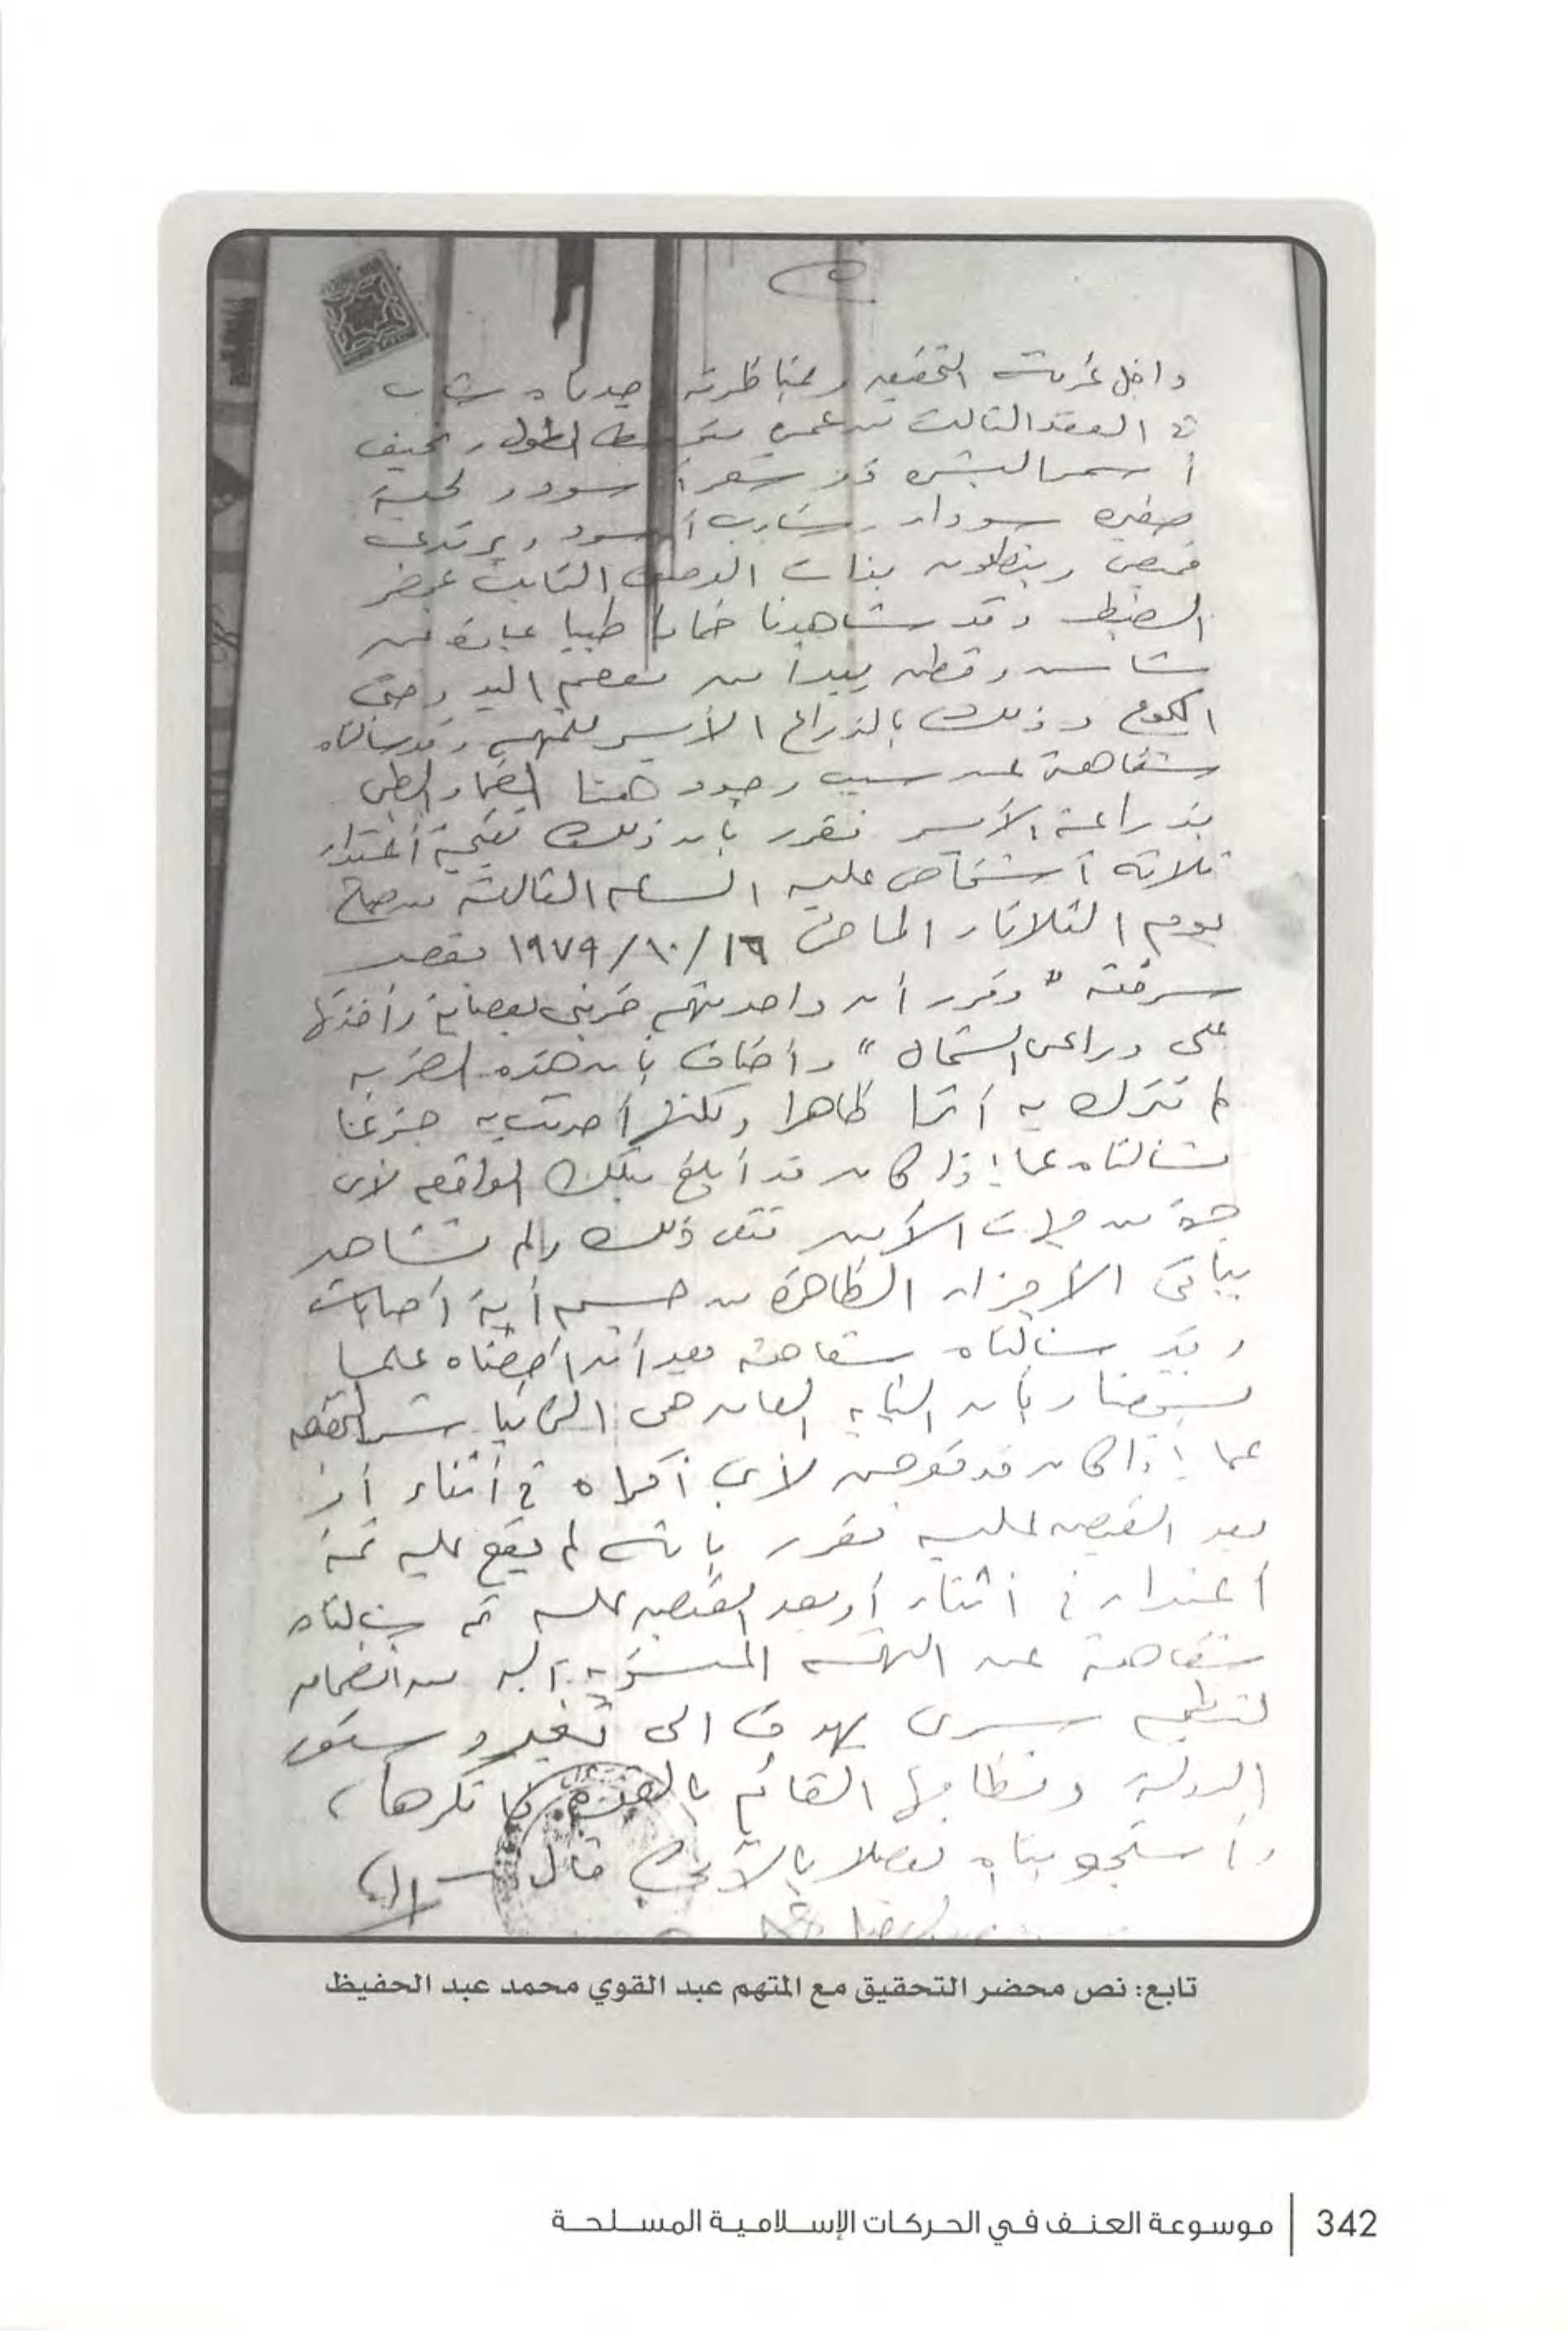 داخل غرفة التحقيق وبمناظرته وجدناه شاب
في العقد الثالث من عمره متوسط الطول ونحيف
أسمر البشرة ذو شعر أسود ولحية
صغيره سوداء وشارب أسود ويرتدى
قميص وبنطلون بذات الوصف الثابت بمحضر
الضبط وقد شاهدنا ضمادا طبيا عبارة عن
شاش وقطن يبدأ من معصم اليد وحتى
الكوع وذلك بالذراع الأيسر للمتهم وقد سألناه
شفاهة عن سبب وجود هذا الضماد الطبى
بذراعه الأيسر فقرر بأن ذلك نتيجة أعتداء
ثلاثة أشخاص عليه الساعه الثالثه من صباح
يوم الثلاثاء الماضى ١٦/١٠/١٩٧٩ بقصد
سرقته " وقرر أن واحد منهم ضربنى بعصايه وأخذتها
على دراعى الشمال " وأضاف بأن هذه الضربه
لم تترك به أثرا ظاهرا ولكنها أحدثت به جزعا
فسألناه عما إذا كان قد أبلغ بتلك الواقعه لأى
جهة من جهات الأمن فنفى ذلك ولم نشاهد
بباقى الأجزاء الظاهرة من جسمه أية أصابات
وقد سألناه شفاهة بعد أن أحطناه علما
بشخصنا وبأن النيابه العامه هى التى تباشر التحقيق
عما إذا كان قد تعرض لأى أكراه فى أثناء أو
بعد القبض عليه فقرر بأنه لم يقع عليه ثمة
أعتداء فى أثناء أو بعد القبض عليه ثم سألناه
شفاهة عن التهمه المنسوبه إليه من انضمامه
لتنظيم سرى يهدف الى تغيير دستور
الدولة ونظامها القائم بالقوه فأنكرها،
وأستجوبناه تفصلا بالآتى قال
تابع: نص محضر التحقيق مع المتهم عبد القوي محمد عبد الحفيظ
342 | موسوعة العنف في الحركات الإسلامية المسلحة